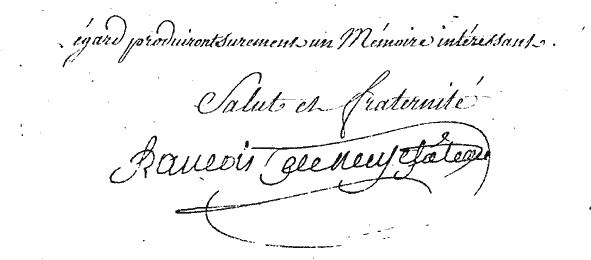 égard produiront surement un Mémoire intéressant.
Salut et fraternité
François de Neufchâteau